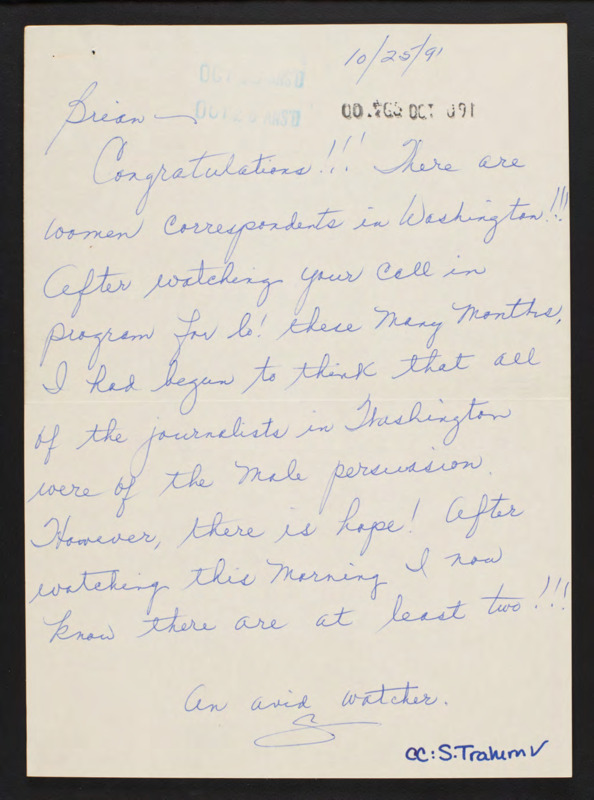 10/25/91
OCT
OCT
OCT 091
Brian —
Congratulations!!! There are
women correspondents in Washington!!!
After watching your call in
program for lo! these many months,
I had begun to think that all
of the journalists in Washington
were of the male persuasion.
However, there is hope! After
watching this morning I now
know there are at least two!!!
An avid watcher.
CC: S. Trahern √